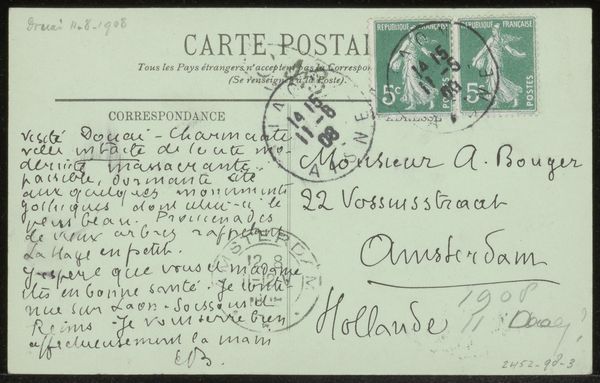 Douai 11-8-1908
CARTE POSTALE
Tous les Pays étrangers n'acceptent pas la Correspondance
(Se renseigner à la Poste).
REPUBLIQUE FRANÇAISE
5c
POSTES
REPUBLIQUE FRANÇAISE
5c
POSTES
LAON
14 15
11-8
08
AISNE
LAON
14 15
11-8
08
AISNE
CORRESPONDANCE
visité Douai - Charmante
ville intacte de toute mo-
dernité massacrante.
paisible, dormante et
aux quelques monuments
gothiques dont celui-ci le
plus beau. Promenades
de vieux arbres rappelant
La Haye en petit.
J'espère que vous et madame
êtes en bonne santé. Je conti-
nue sur Laon - Soissons et
Reims - Je vous serre bien
affectueusement la main
EB.
AMSTERDAM
ADRESSE
Monsieur A. Bouger
22 Vossiusstraat
Amsterdam
Hollande
1908
2452-98-3